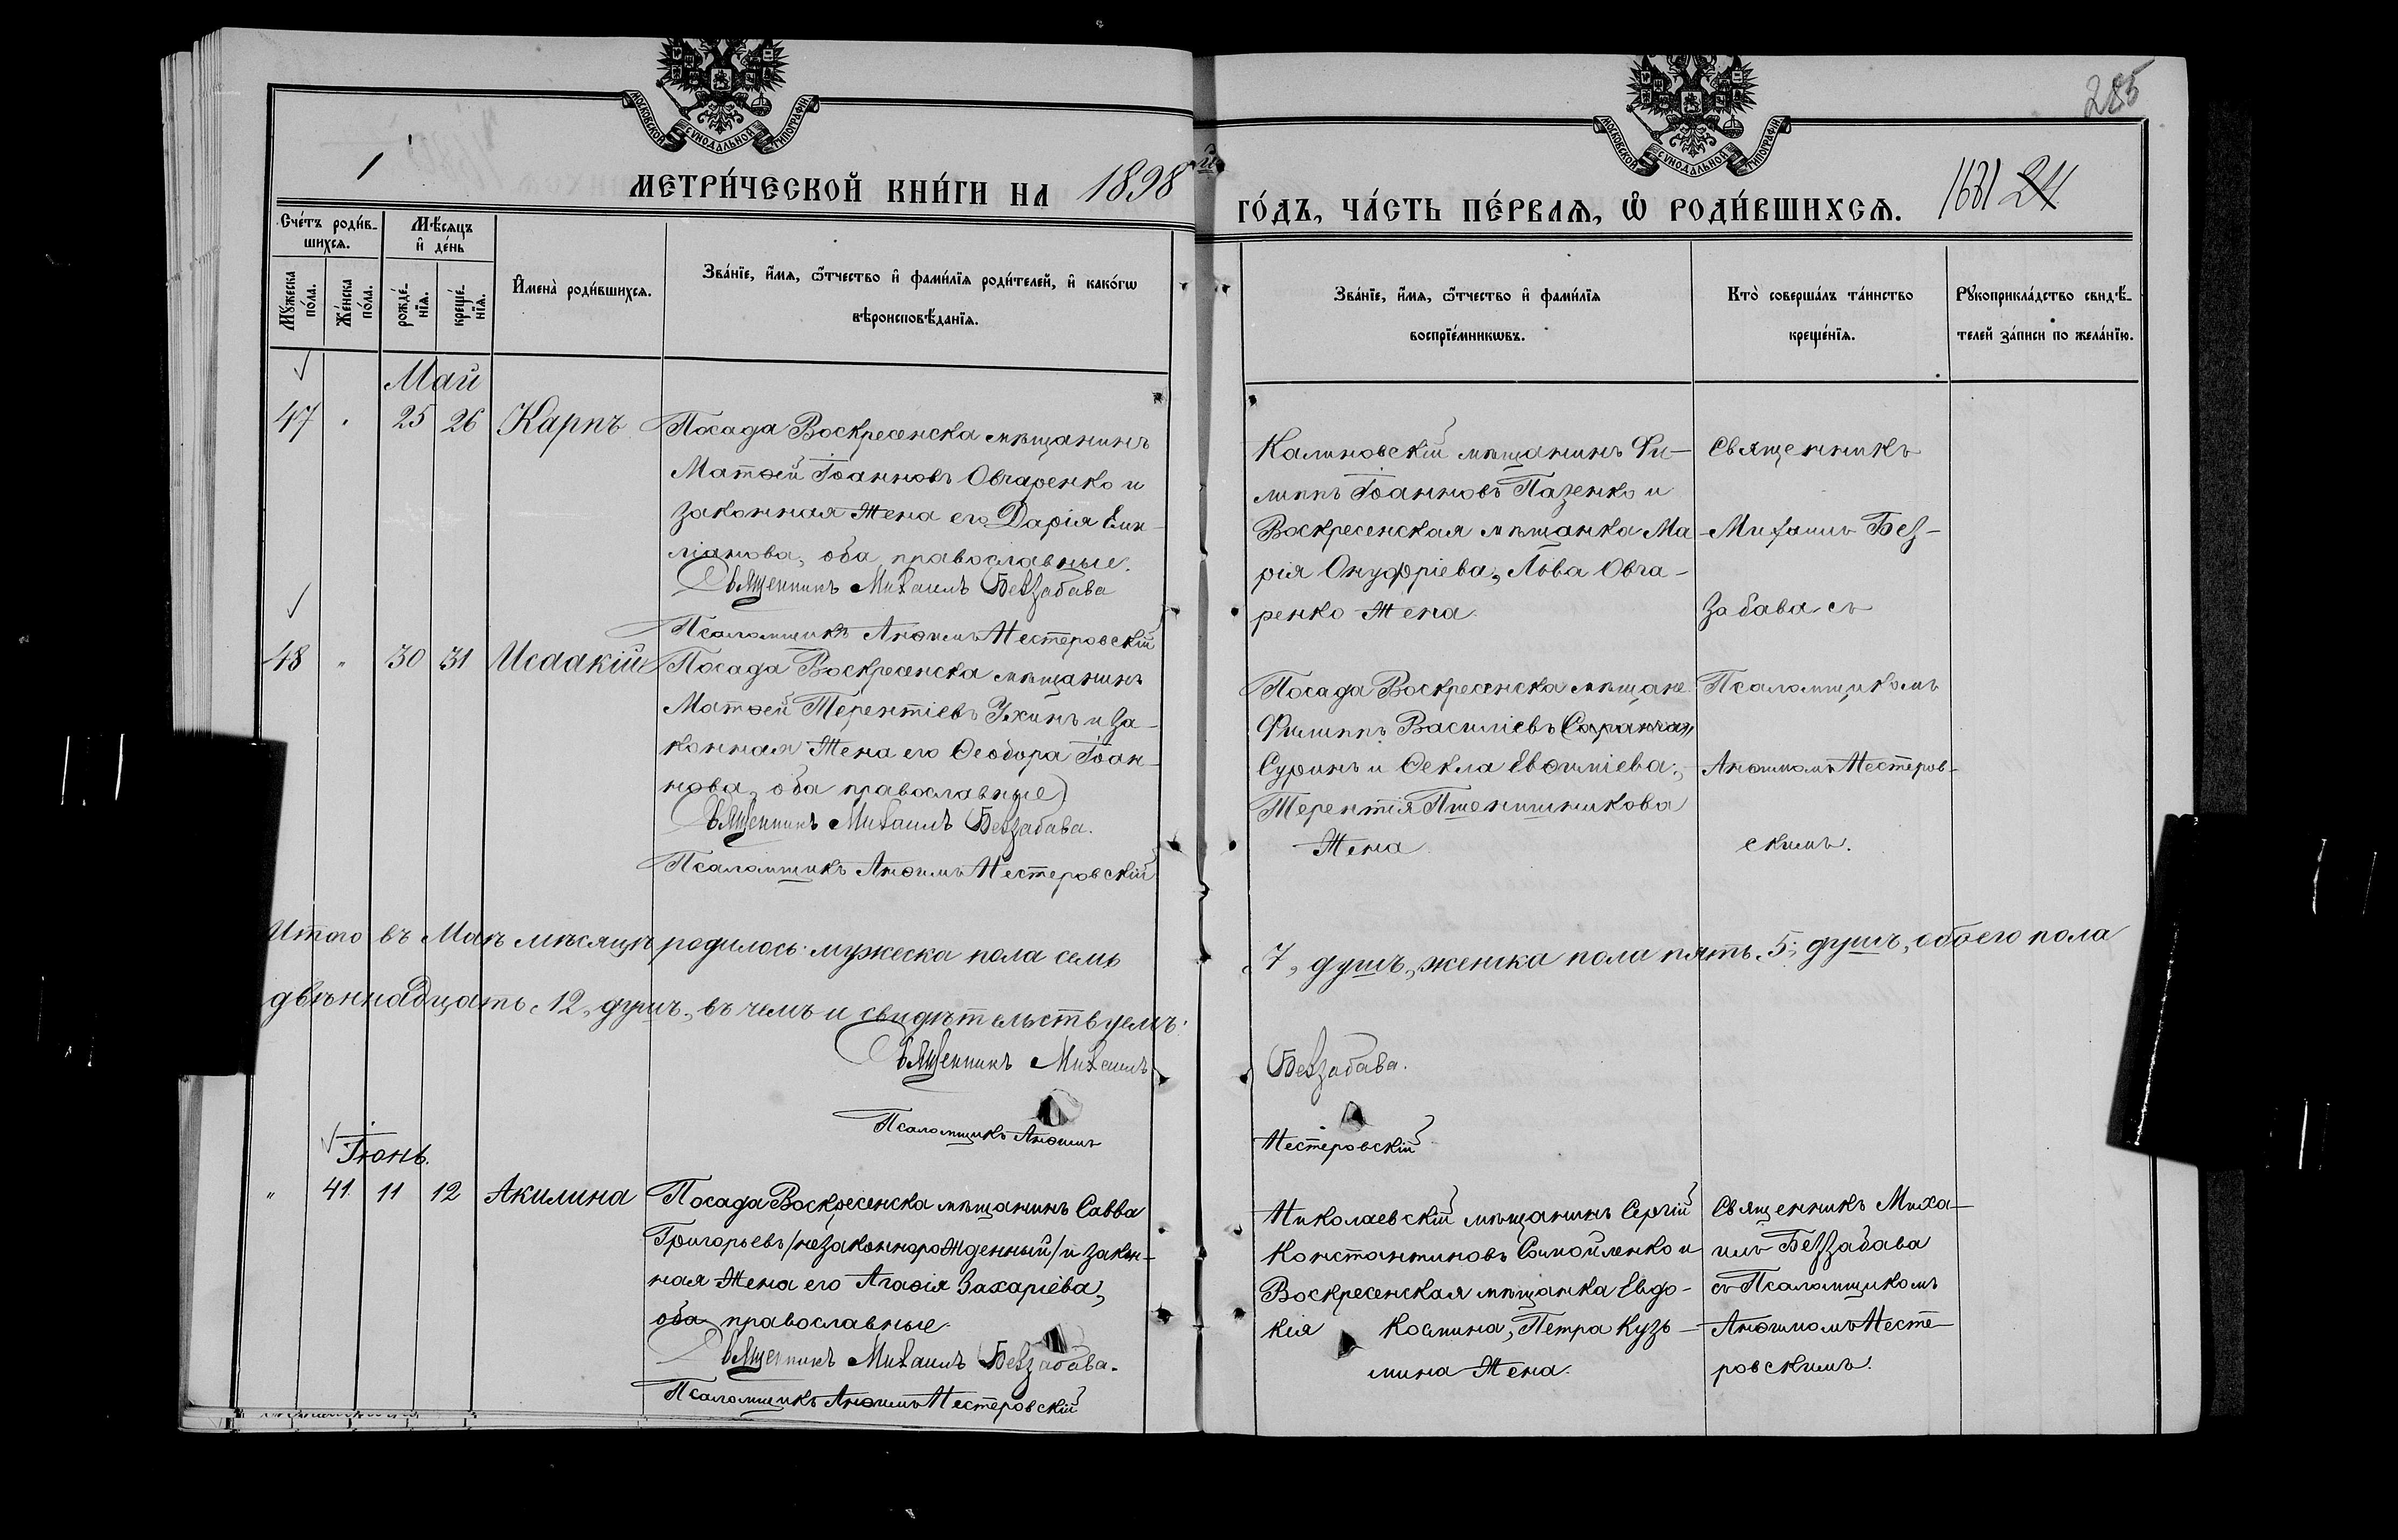 МОСКОВСКОЙ СУНОДАЛЬНОЙ ТИПОГРАФІИ
МОСКОВСКОЙ СУНОДАЛЬНОЙ ТИПОГРАФІИ
285
1
МЕТРИ́ЧЕСКОЙ КНИ́ГИ НА 1898 й
ГО́ДЪ, ЧА́СТЬ ПЕ́РВАѦ, Ѽ РОДИ́ВШИХСѦ.
1631 24
Сче́тъ роди́в-
шихсѧ.
Мѣ́сяцъ
и҆ де́нь
Мꙋ́жеска
по́ла.
Же́нска
по́ла.
рожде́-
нїѧ.
креще́-
нїѧ.
И҆мена̀ роди́вшихсѧ.
Зва́нїе, и҆́мѧ, ѻ҆́тчество и҆ фами́лїѧ роди́телей, и҆ како́гѡ
вѣроисповѣ́данїѧ.
Зва́нїе, и҆́мѧ, ѻ҆́тчество и҆ фами́лїѧ
воспрїе́мникѡвъ.
Кто̀ соверша́лъ та́инство
креще́нїѧ.
Рꙋкоприкла́дство свидѣ́-
телей за́писи по жела́нїю.
Май
47 " 25 26 Карпъ
Посада Воскресенска мѣщанинъ
Матѳей Іоанновъ Овчаренко и
законная жена его Дарія Еми-
ліанова, оба православные.
Священникъ Михаилъ Беззабава
Псаломщикъ Анѳимъ Нестеровскій
Калиновскій мѣщанинъ Фи-
липпъ Іоанновъ Пазенко и
Воскресенская мѣщанка Ма-
рія Онуфріева, Льва Овча-
ренко жена.
Священникъ
Михаилъ Без-
забава съ
48 " 30 31 Исаакій
Посада Воскресенска мѣщанинъ
Матѳей Терентіевъ Ухинъ и за-
конная жена его Ѳеодора Іоан-
нова, оба православные
Священникъ Михаилъ Беззабава.
Псаломщикъ Анѳимъ Нестеровскій
Посада Воскресенска мѣщане
Филиппъ Василіевъ
Суринъ и Ѳекла Евѳиміева,
Терентія Пшенишникова
жена
Псаломщикомъ
Анѳимомъ Нестеров-
скимъ.
Итого въ Маѣ мѣсяцѣ родилось: мужеска пола семь
7, душъ, женска пола пять, 5, душъ, обоего пола
двѣннадцать, 12, душъ, въ чемъ и свидѣтельствуемъ:
Священникъ Михаилъ
Беззабава.
Псаломщикъ Анѳимъ
Нестеровскій
Іюнь.
" 41 11 12 Акилина
Посада Воскресенска мѣщанинъ Савва
Григорьевъ /незаконнорожденный/ и закон-
ная жена его Агаѳія Захаріева,
оба православные.
Священникъ Михаилъ Беззабава.
Псаломщикъ Анѳимъ Нестеровскій
Николаевскій мѣщанинъ Сергій
Константиновъ Самойленко и
Воскресенская мѣщанка Евдо-
кія Космина, Петра Кузь-
мина жена.
Священникъ Миха-
илъ Беззабава
съ Псаломщикомъ
Анѳимомъ Несте-
ровскимъ.